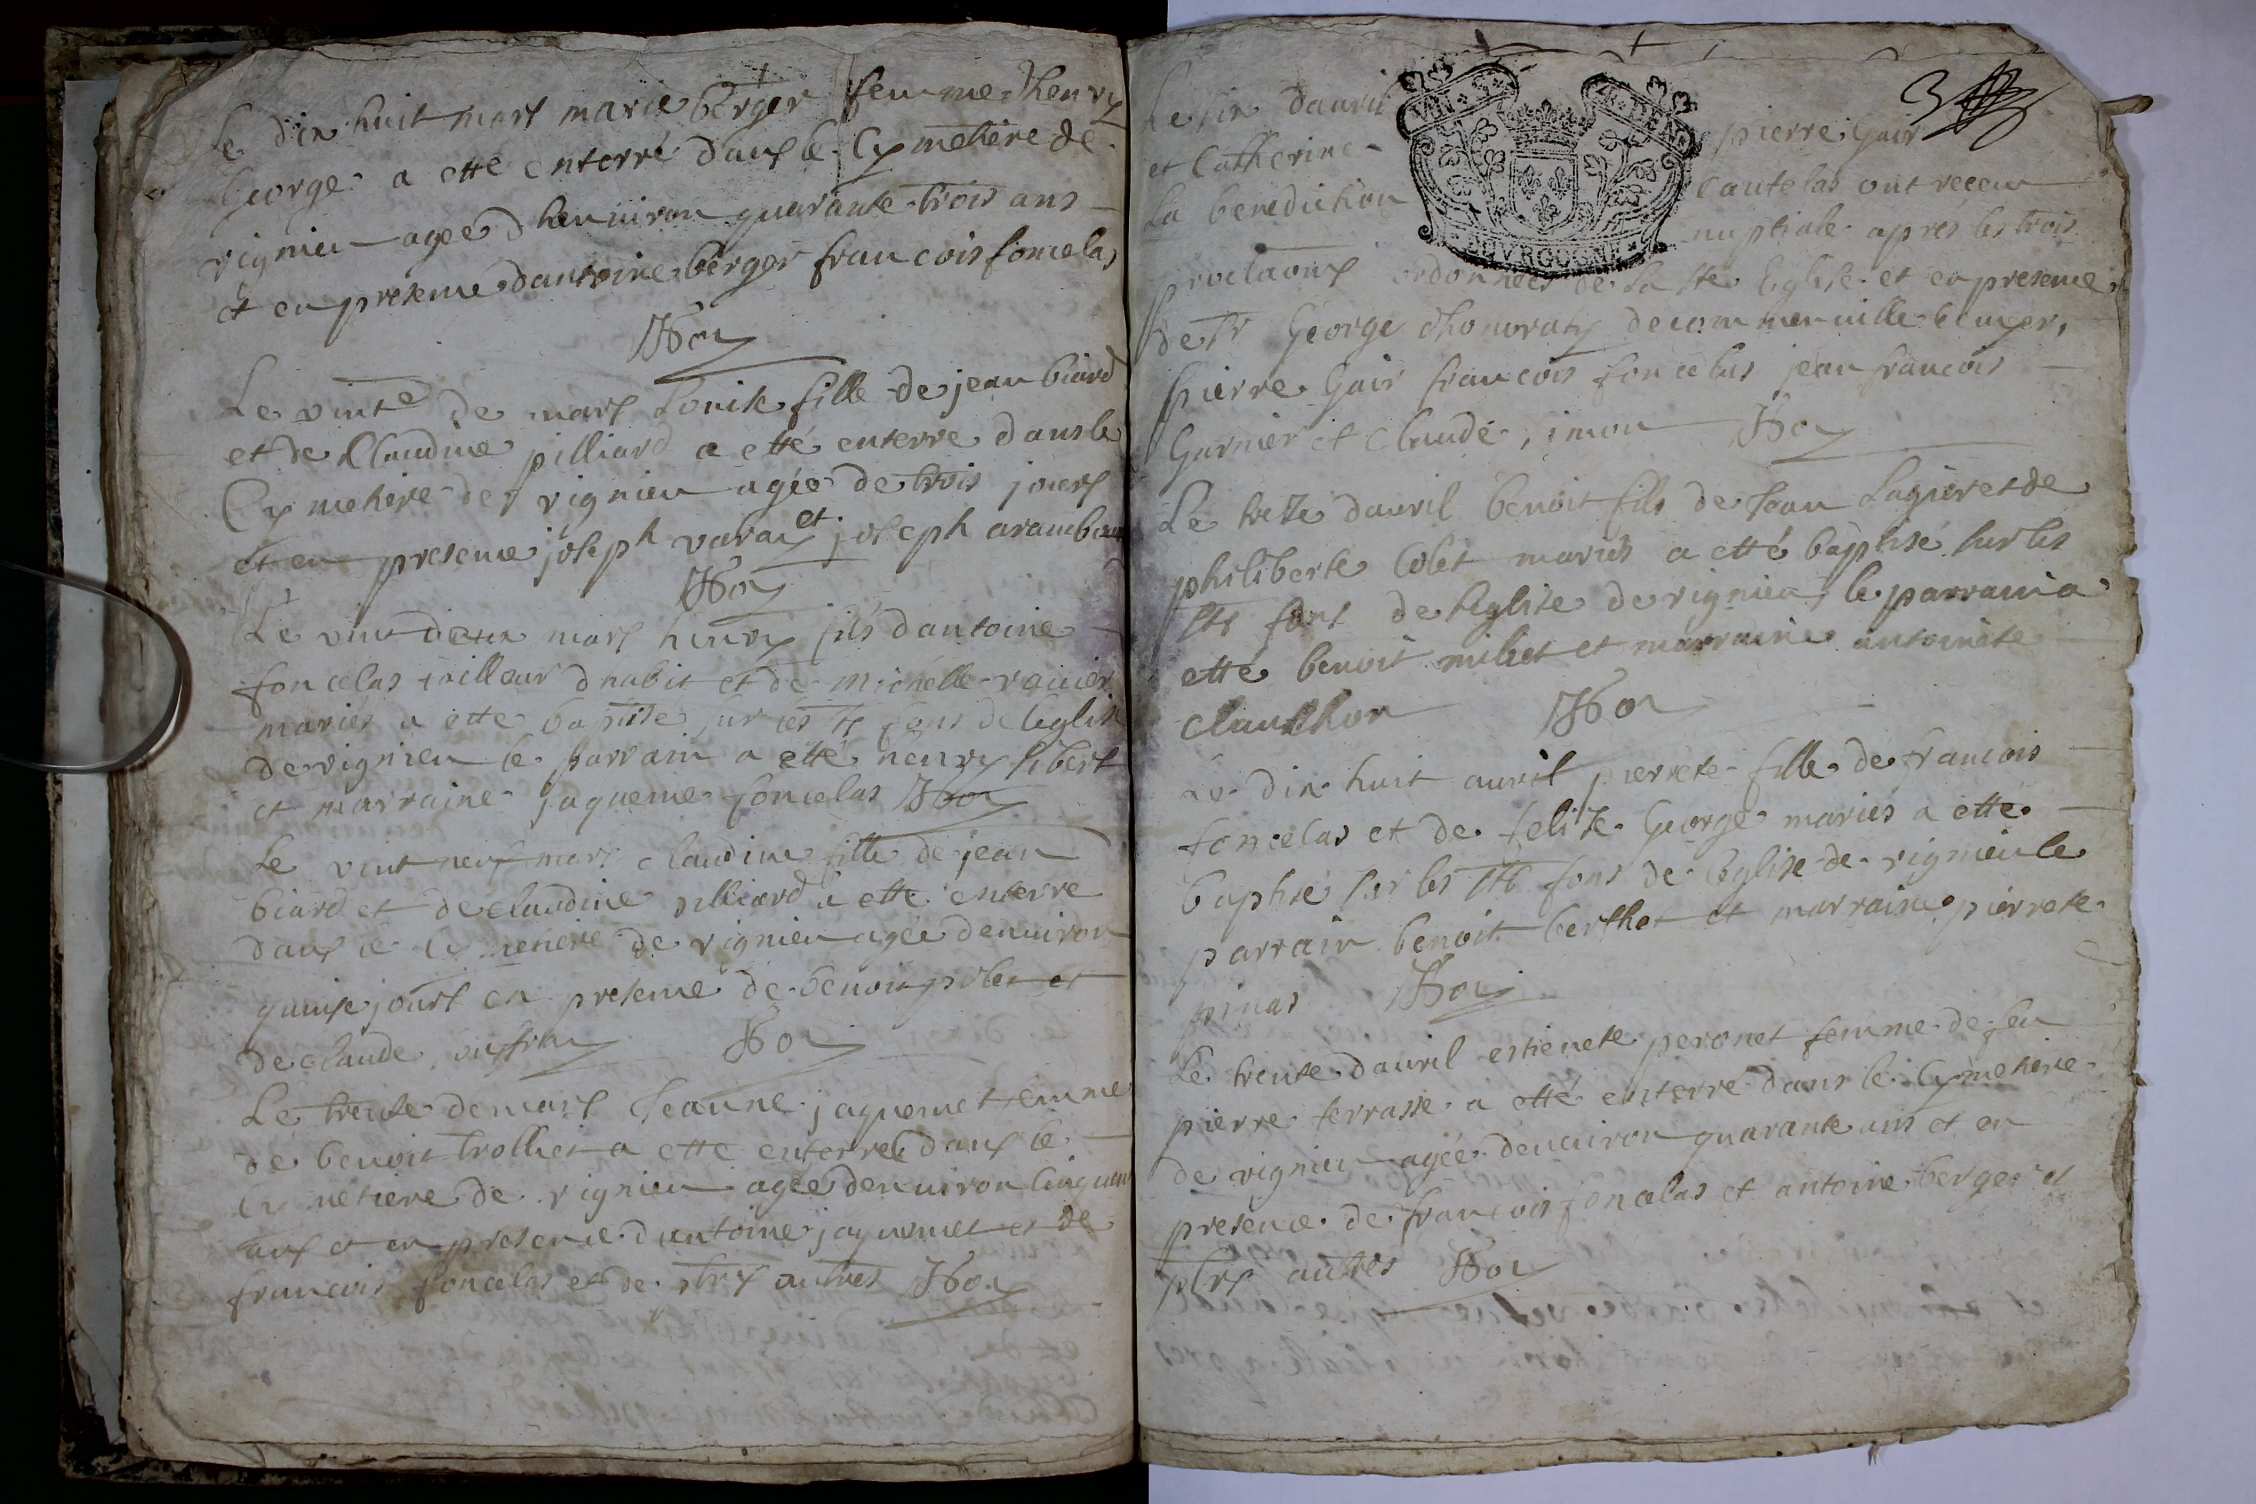 Le dix huit mars marie berger femme dhenry
George a etté enterré dans le Cymetiere de
vignieu agée dhenuiron quarante trois ans
et en presence dantoine berger francois foncelas
Le vinte de mars Louise fille de jean biard
et de Claudine pilliard a etté enterre dans le
Cymetiere de vignieu agée de trois jours
et en presence joseph varay et joseph
Le vint deux mars henry fils dantoine
foncelas tailleur dhabit et de michelle
mariés a etté baptise sur les sts fons de leglise
de vignieu le parrain a etté henry libert
et marraine jaqueme foncelas
Le vint neuf mars claudine fille de jean
biard et de claudine pilliard a etté enterre
dans le Cymetiere de vignieu agée denuiron
quinse jours en presence de benoit et
de claude
Le trente de mars Jeanne jaquemet femme
de benoit trolliet a etté enterrée dans le
Cymetiere de vignieu agée denuiron
ans et en presence dantoine jaquemet et de
francois foncelas et de plrs autres
3
Le six dauril pierre Guir
et Catherine Cautelas ont receu
La benediction nuptiale apres les trois
BOVRGOGNE
proclaons ordonnées de la ste Eglise et en presence
de Sr George dhonoraty
pierre Guir francois foncelas jean francois
Garnier et Claude
Le treze dauril benoit fils de Jean Lagier et de
philiberte Colet mariés a etté baptisé sur les
sts fons de leglise de vignieu le parrain a
etté benoit milliet et marraine antoinete
Le dix huit auril pierrete fille de francois
foncelas et de felise George mariés a etté
baptisé sur les sts fons de leglise de vignieu le
parrain benoit berthet et marraine pierrete
pinas
Le trente dauril estienete peronet femme de feu
pierre terrasse a etté enterré dans le Cymetiere
de vignieu agée denuiron quarante ans et en
presence de francois foncelas et antoine berger et
plrs autres